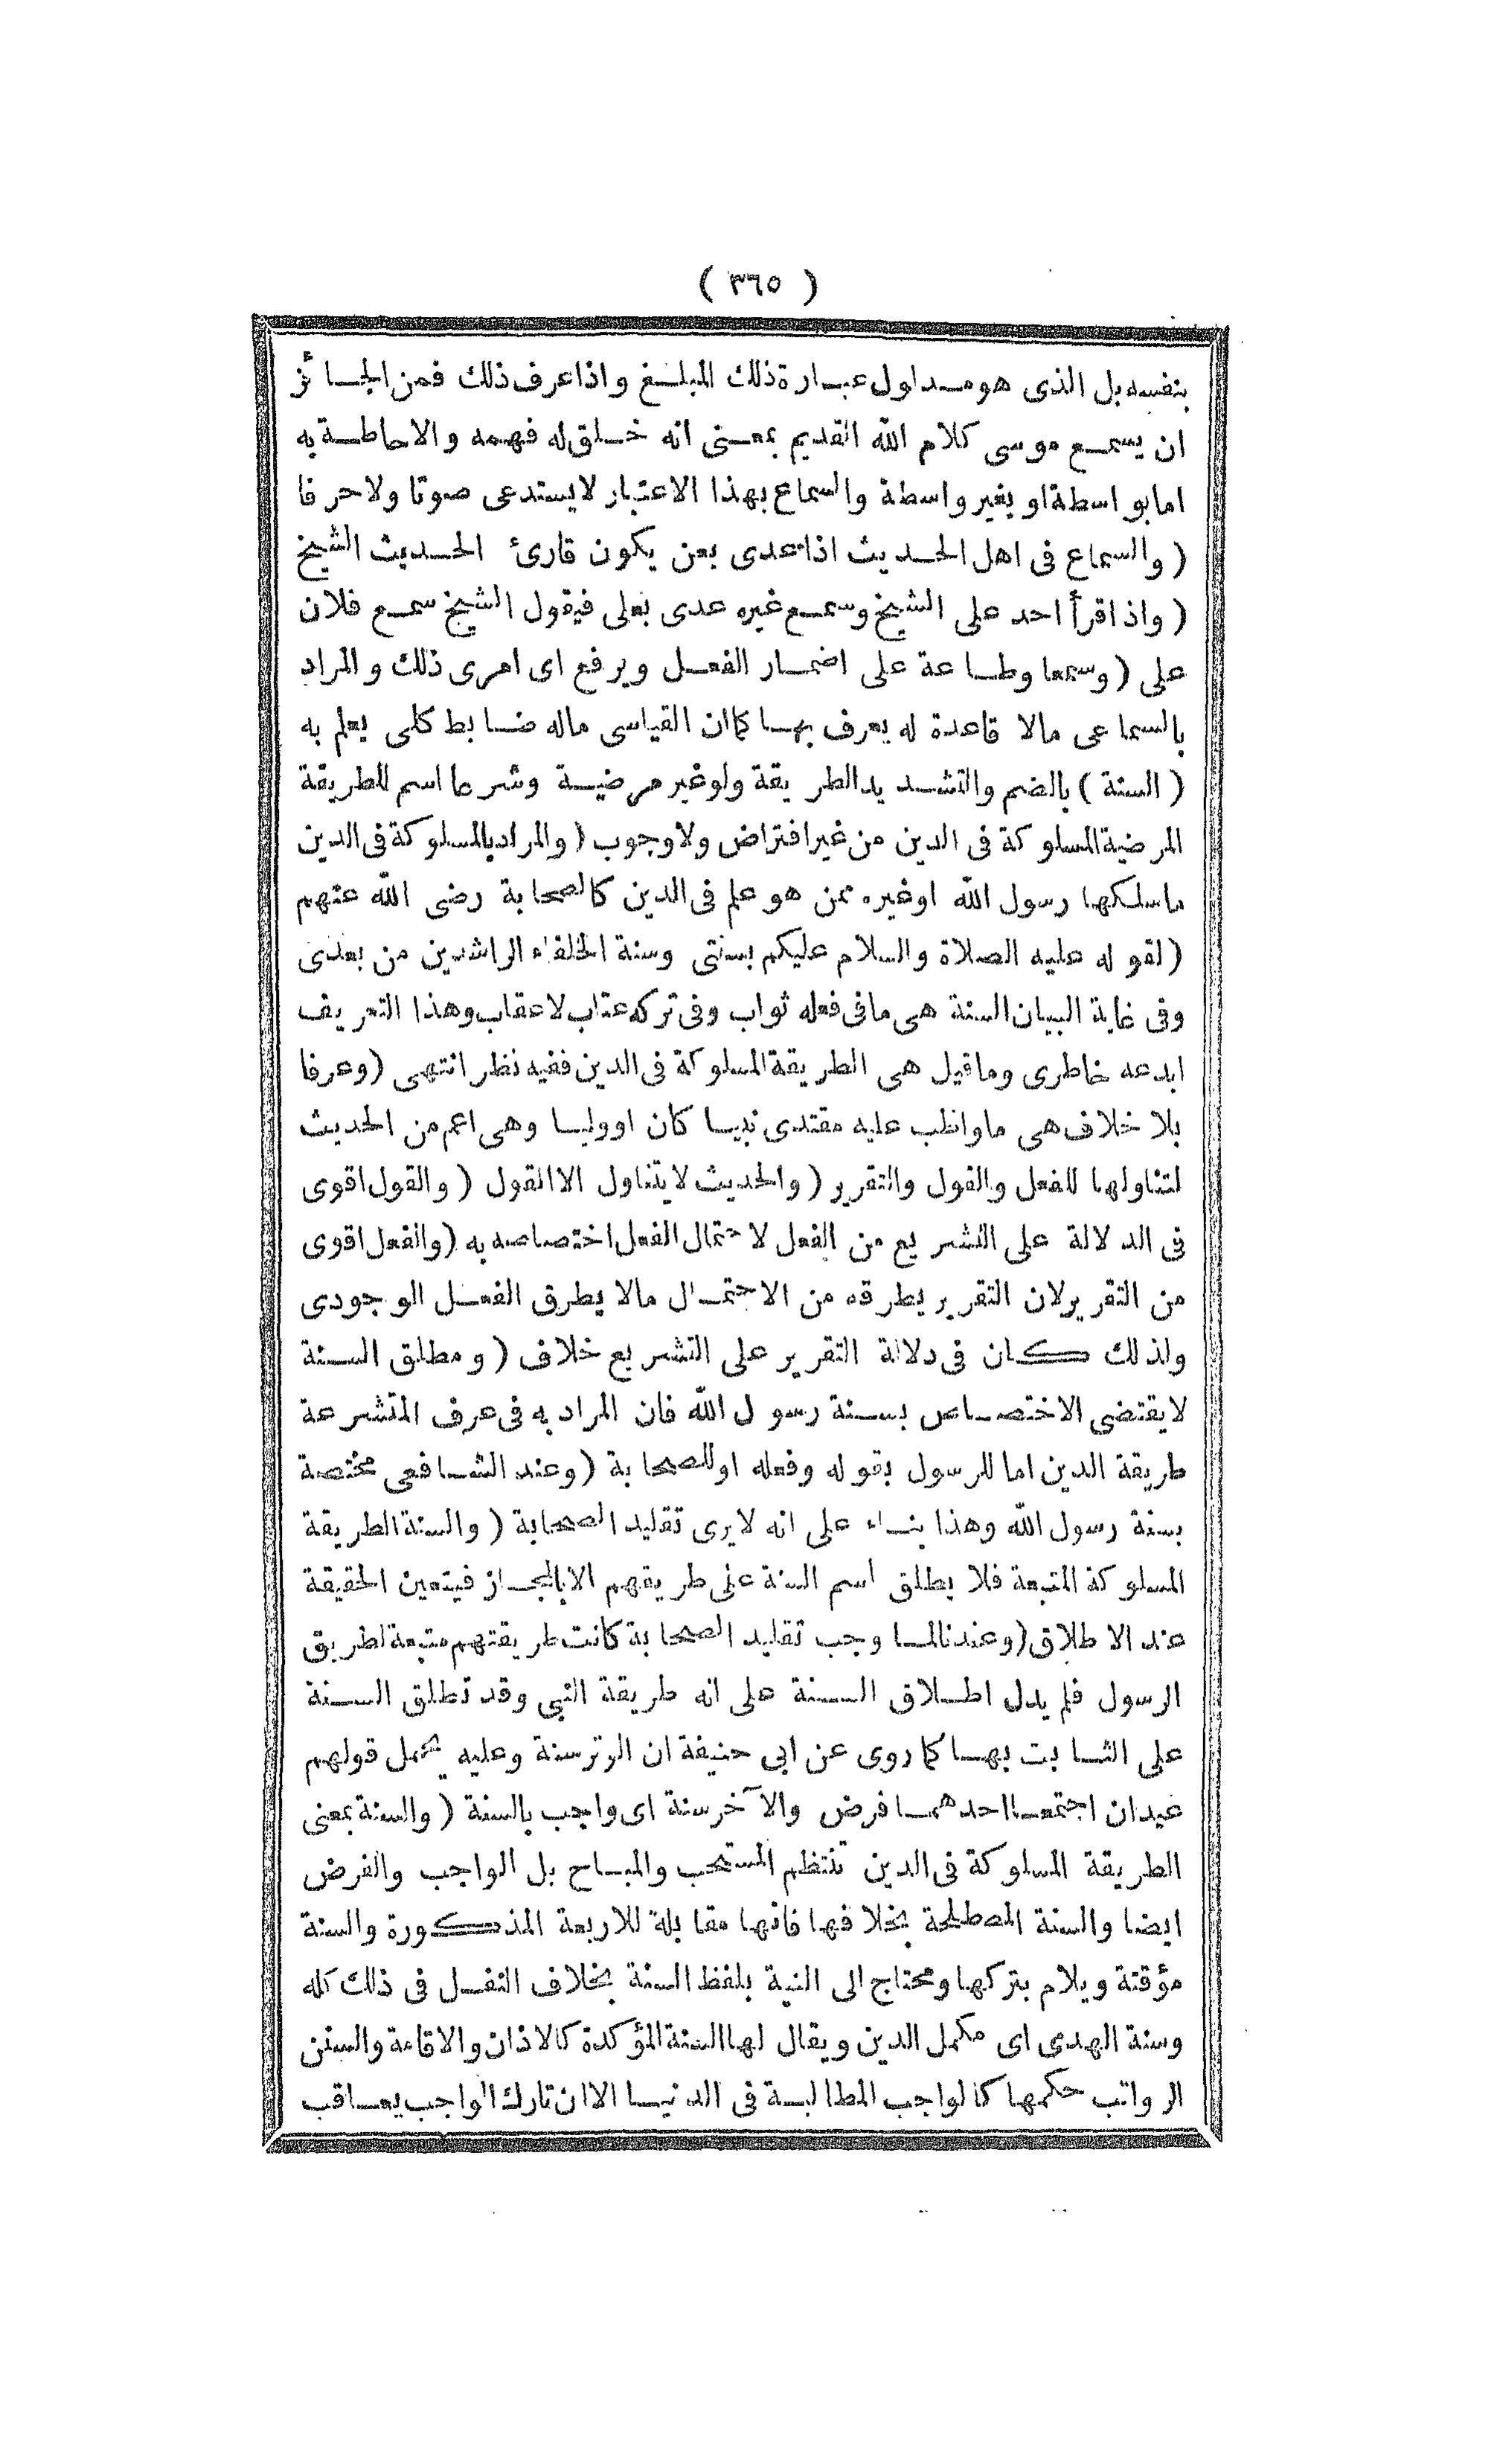 ( ٣٦٥ )
بنفسه بل الذى هو مدلول عبارة ذلك المبلغ واذا عرف ذلك فمن الجائز
ان يسمع موسى كلام الله القديم بمعنى انه خلق له فهمه والاحاطة به
اما بواسطة او بغير واسطة والسماع بهذا الاعتبار لا يستدعى صوتا ولا حرفا
( والسماع فى اهل الحديث اذا عدى بعن يكون قارئ الحديث الشيخ
( واذ اقرأ احد على الشيخ وسمع غيره عدى بعلى فيقول الشيخ سمع فلان
على ( وسمعا وطاعة على اضمار الفعل ويرفع اى امرى ذلك والمراد
بالسماعى مالا قاعدة له يعرف بها كما ان القياسى ماله ضابط كلى يعلم به
( السنة ) بالضم والتشديد الطريقة ولو غير مرضية وشرعا اسم للطريقة
المرضية المسلوكة فى الدين من غير افتراض ولا وجوب ( والمراد بالمسلوكة فى الدين
ما سلكها رسول الله او غيره ممن هو علم فى الدين كالصحابة رضى الله عنهم
( لقوله عليه الصلاة والسلام عليكم بسنتى وسنة الخلفاء الراشدين من بعدى
وفى غاية البيان السنة هى ما فى فعله ثواب وفى تركه عتاب لا عقاب وهذا التعريف
ابدعه خاطرى وما قيل هى الطريقة المسلوكة فى الدين ففيه نظر انتهى ( وعرفا
بلا خلاف هى ما واظب عليه مقتدى نبيا كان او وليا وهى اعم من الحديث
لتناولها للفعل والقول والتقرير ( والحديث لا يتناول الا القول ( والقول اقوى
فى الدلالة على التشريع من الفعل لاحتمال الفعل اختصاصه به ( والفعل اقوى
من التقرير لان التقرير يطرقه من الاحتمال مالا يطرق الفعل الوجودى
ولذلك كان فى دلالة التقرير على التشريع خلاف ( ومطلق السنة
لا يقتضى الاختصاص بسنة رسول الله فان المراد به فى عرف المتشرعة
طريقة الدين اما للرسول بقوله وفعله او للصحابة ( وعند الشافعى مختصة
بسنة رسول الله وهذا بناء على انه لا يرى تقليد الصحابة ( والسنة الطريقة
المسلوكة المتبعة فلا يطلق اسم السنة على طريقهم الا بالمجاز فيتعين الحقيقة
عند الاطلاق ( وعندنا لما وجب تقليد الصحابة كانت طريقتهم متبعة لطريق
الرسول فلم يدل اطلاق السنة على انه طريقة النبى وقد تطلق السنة
على الثابت بها كما روى عن ابى حنيفة ان الوتر سنة وعليه يحمل قولهم
عيدان اجتمعا احدهما فرض والآخر سنة اى واجب بالسنة ( والسنة بمعنى
الطريقة المسلوكة فى الدين تنتظم المستحب والمباح بل الواجب والفرض
ايضا والسنة المصطلحة بخلافها فانها مقابلة للاربعة المذكورة والسنة
مؤقتة ويلام بتركها ومحتاج الى النية بلفظ السنة بخلاف النفل فى ذلك كله
وسنة الهدى اى مكمل الدين ويقال لها السنة المؤكدة كالاذان والاقامة والسنن
الرواتب حكمها كالواجب المطالبة فى الدنيا الا ان تارك الواجب يعاقب